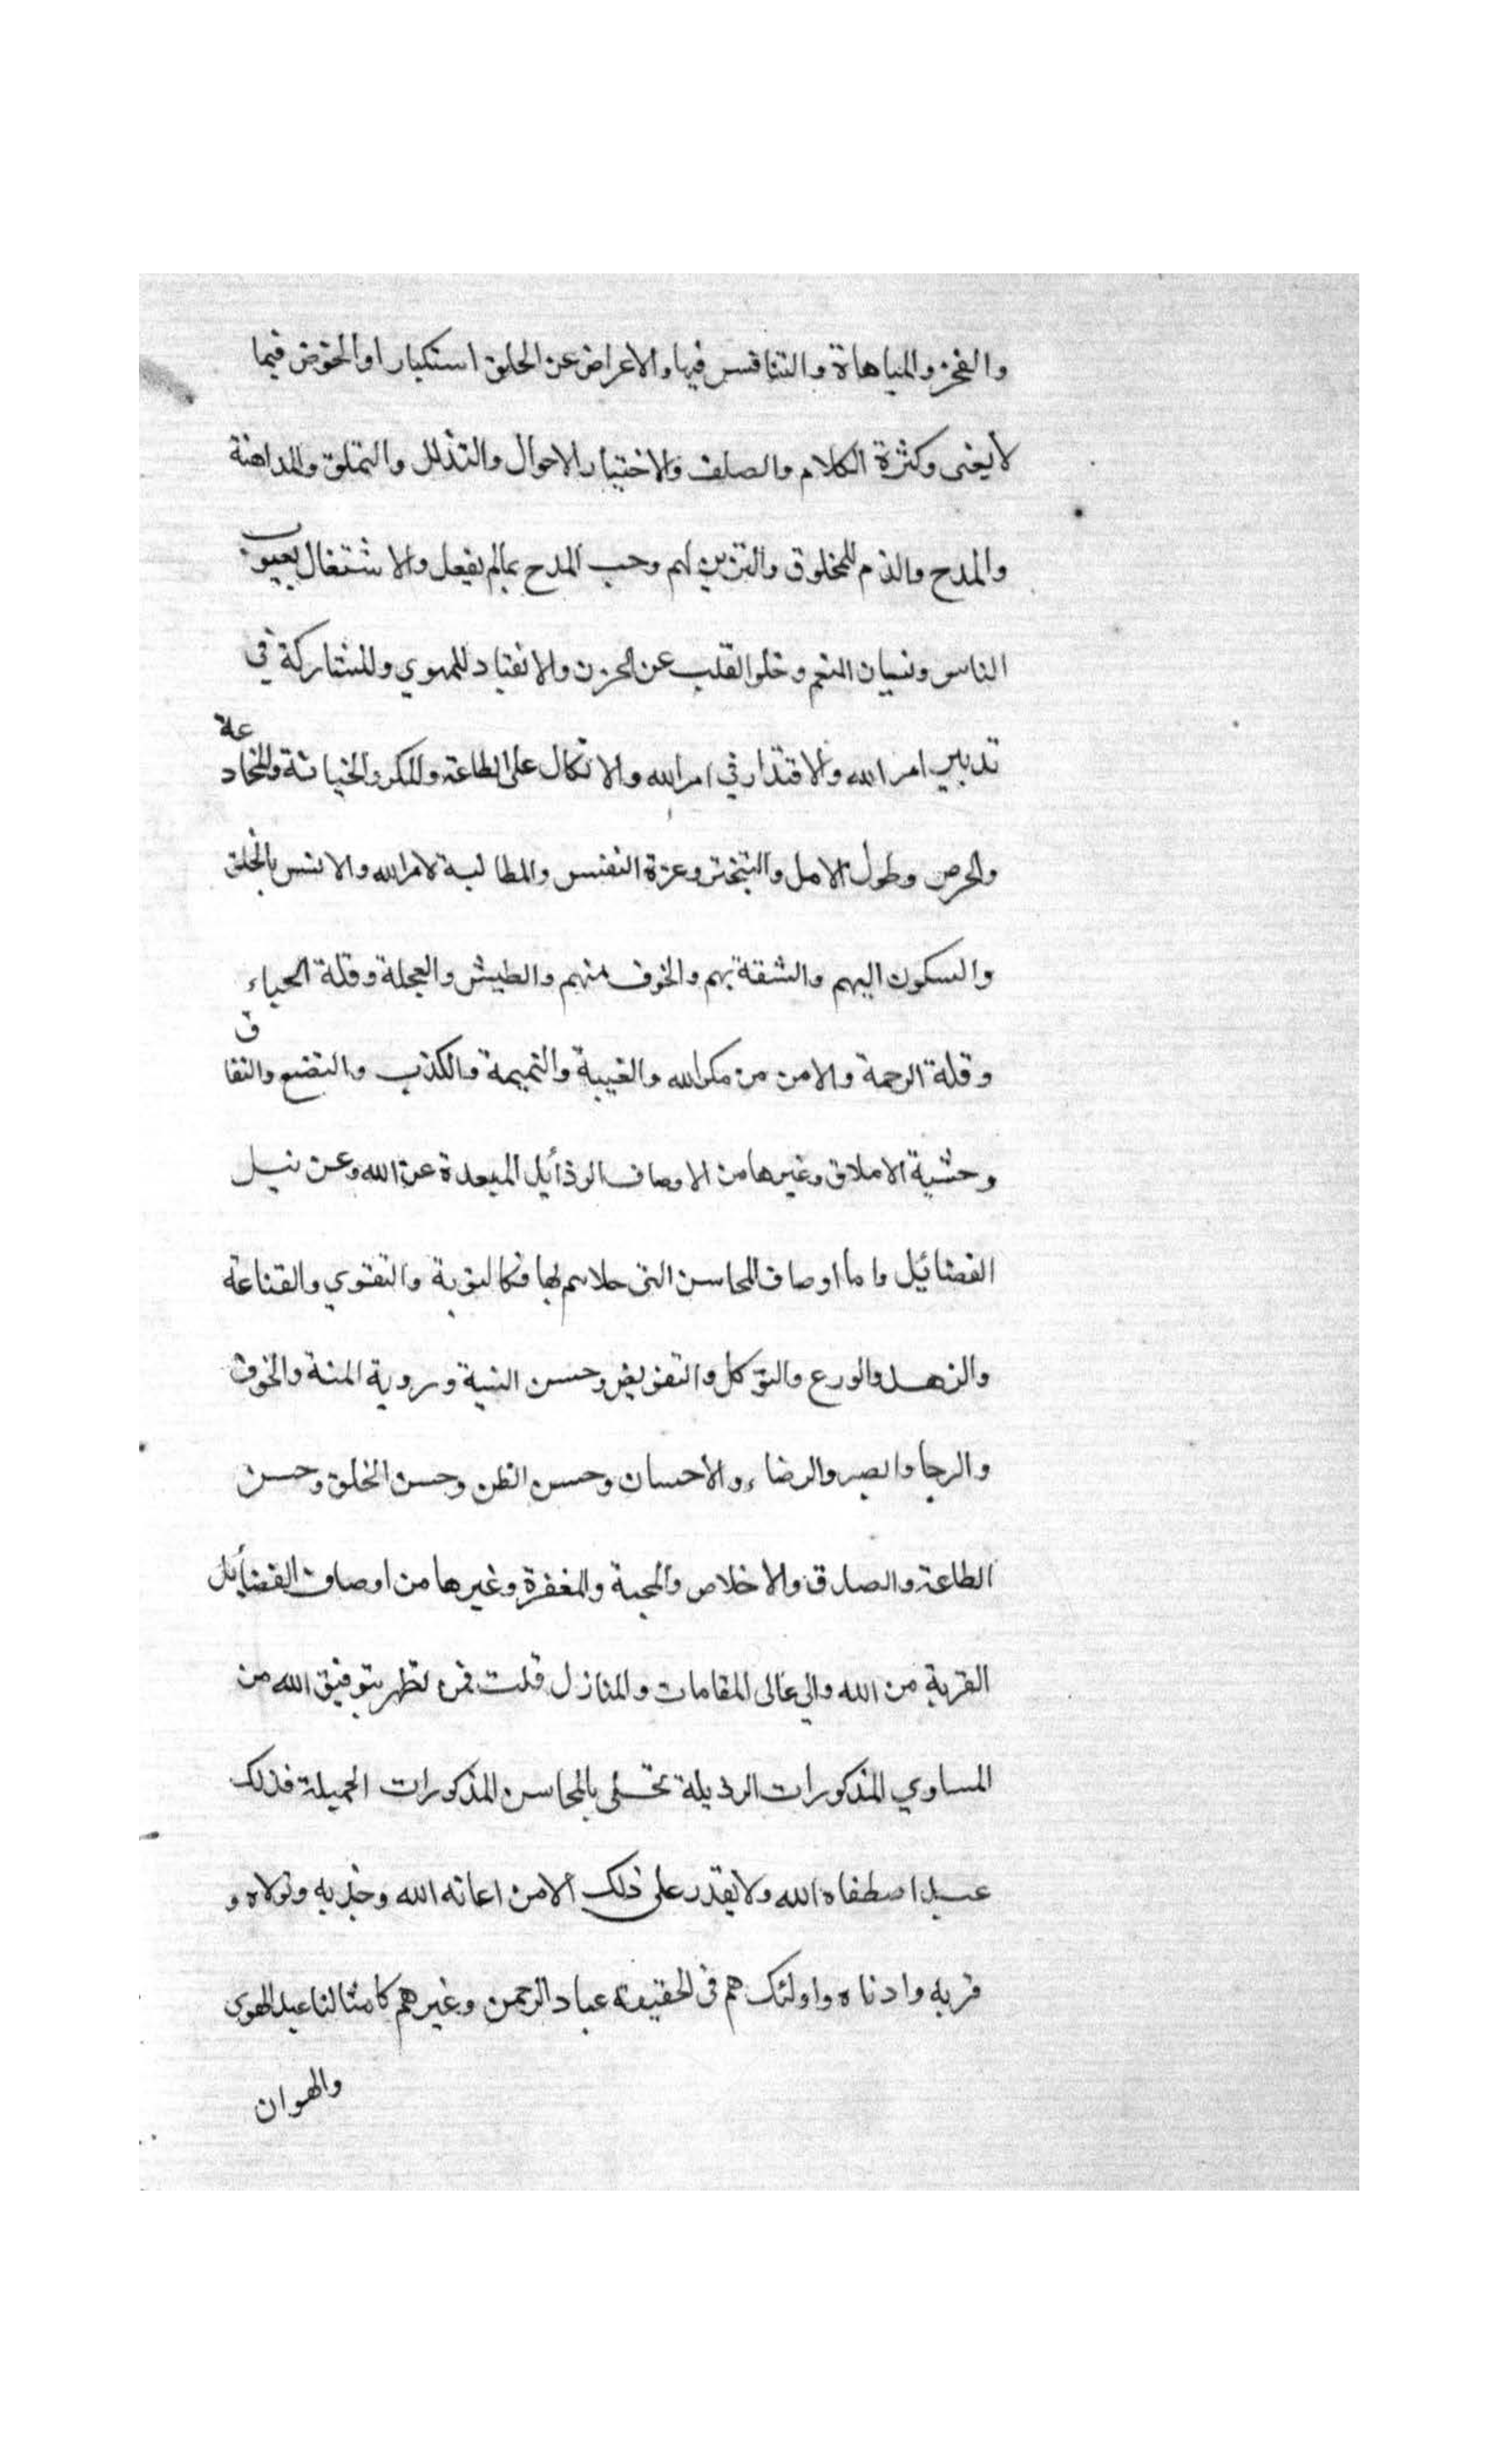 والفخر والمباهاة والتنافس فيها والاعراض عن الخلق استكبارا والخوض فيما
لا يعنى وكثرة الكلام والصلف والاختيار الاحوال والتذلل والتملق والمداهنة
والمدح والذم للمخلوق والتزين لهم وحب المدح بمالم يفعل والاشتغال بعيوب
الناس ونسيان النعم وخلو القلب عن الحزن والانقياد للهوي والمشاركة في
تدبير امر الله والاقتدار في امر الله والاتكال على الطاعة والمكر والخيانة والمخادعة
والحرص وطول الامل والتبختر وعزة النفس والمطالبة لامر الله والانس بالخلق
والسكون اليهم والثقة بهم والخوف منهم والطيش والعجلة وقلة الحياء
وقلة الرحمة والامن من مكر الله والغيبة والنميمة والكذب والتصنع والنفاق
وخشية الاملاق وغيرها من الاوصاف الرذأيل المبعدة عن الله وعن نيل
الفضائيل واما اوصاف المحاسن التى حلاهم بها فكالتوبة والتقوي والقناعة
والزهد والورع والتوكل والتفويض وحسن النية وروية المنة والخوف
والرجا والصبر والرضاء والاحسان وحسن الظن وحسن الخلق وحسن
الطاعة والصدق والاخلاص والمحبة والمغفرة وغيرها من اوصاف الفضأيل
القربة من الله والي عالى المقامات والمنازل قلت فمن تطهر بتوفيق الله من
المساوي المذكورات الرذيلة تحلى بالمحاسن المذكورات الجميلة فذلك
عبد اصطفاه الله ولا يقدر على ذلك الا من اعانه الله وجذبه وتولاه و
قربه وادناه واولئك هم فى الحقيقة عباد الرحمن وغيرهم كامثالنا عبيد الهوى
والهوان